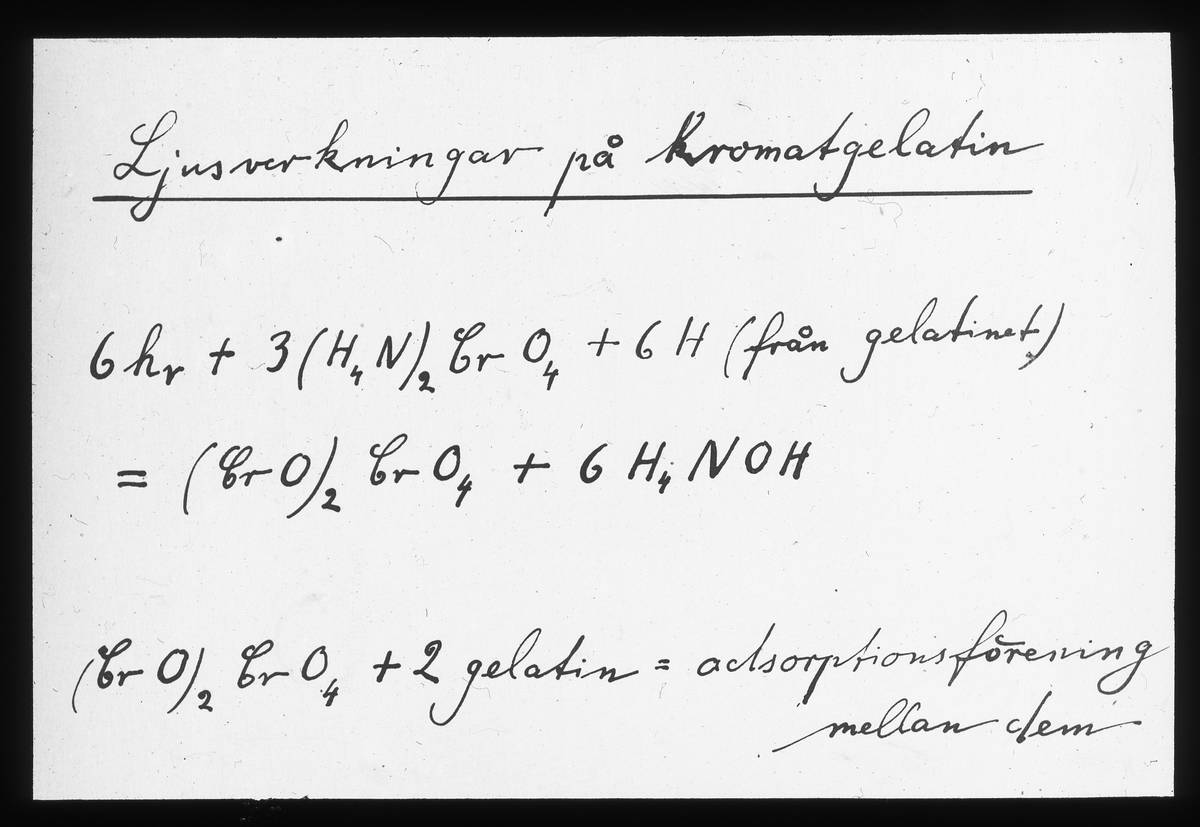 Ljusverkningar på Kromatgelatin
6 hν + 3(H₄N)₂CrO₄ + 6H (från gelatinet)
= (CrO)₂CrO₄ + 6H₄NOH
(CrO)₂CrO₄ + 2 gelatin = adsorptionsförening
mellan dem